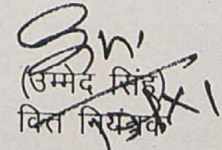 (उम्मेद सिंह)
वित्त नियंत्रक